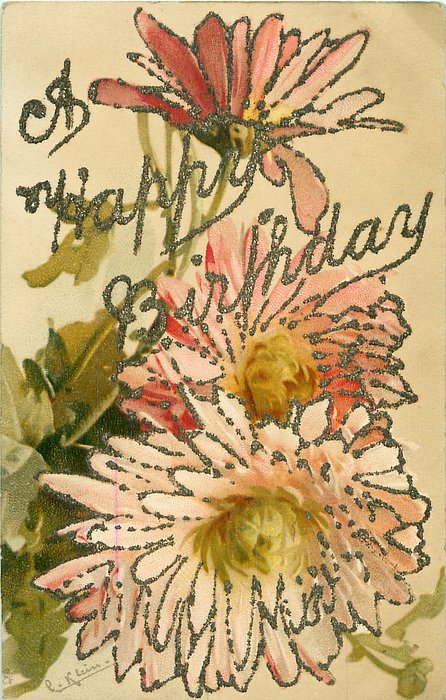 A
Happy
Birthday
C. Klein.